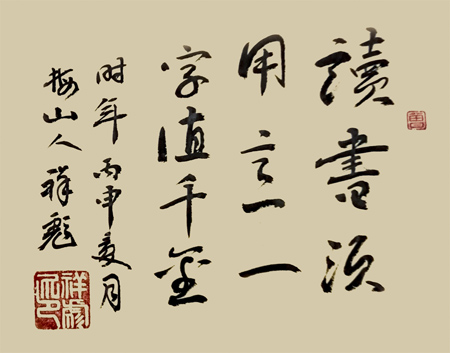 讀書須
用意一
字值千金
时年丙申夏月
梅山人祥彪
祥彪之印